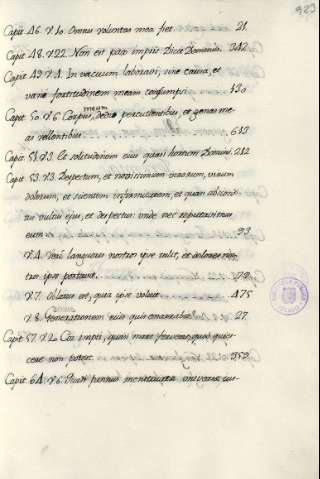 323
Capit. 46. V. 10. Omnis voluntas mea fiet. 21.
Capit. 48. V. 22. Non est pax impiis dicit Dominus. 342
Capit. 49. V. 4. In vacuum laboravi, sine causa, et
vane fortitudinem meam consumpsi. 130
Capit. 50. V. 6. Corpus meum dedi percutientibus, et genas me
as vellentibus. 632
Capit. 51. V. 3. Et solitudinem eius quasi hortum Domini. 212
Capit. 53. V. 3. Despectum, et novissimum virorum, virum
dolorum, et scientem infirmitatem, et quasi abscondi
tus vultus ejus, et despectus: unde nec reputavimus
eum 93
V. 4. Vere languores nostros ipse tulit, et dolores nos-
tros ipse portavit. 179
V. 7. Oblatus est, quia ipse voluit. 475
V. 8. Generationem eius quis enarrabit? 27
Capit. 57. V. 20. impii, quasi mare fervens, quod quies-
cere non potest. 359
Capit. 64. V. 6. Quasi pannus menstruatae universae ius-